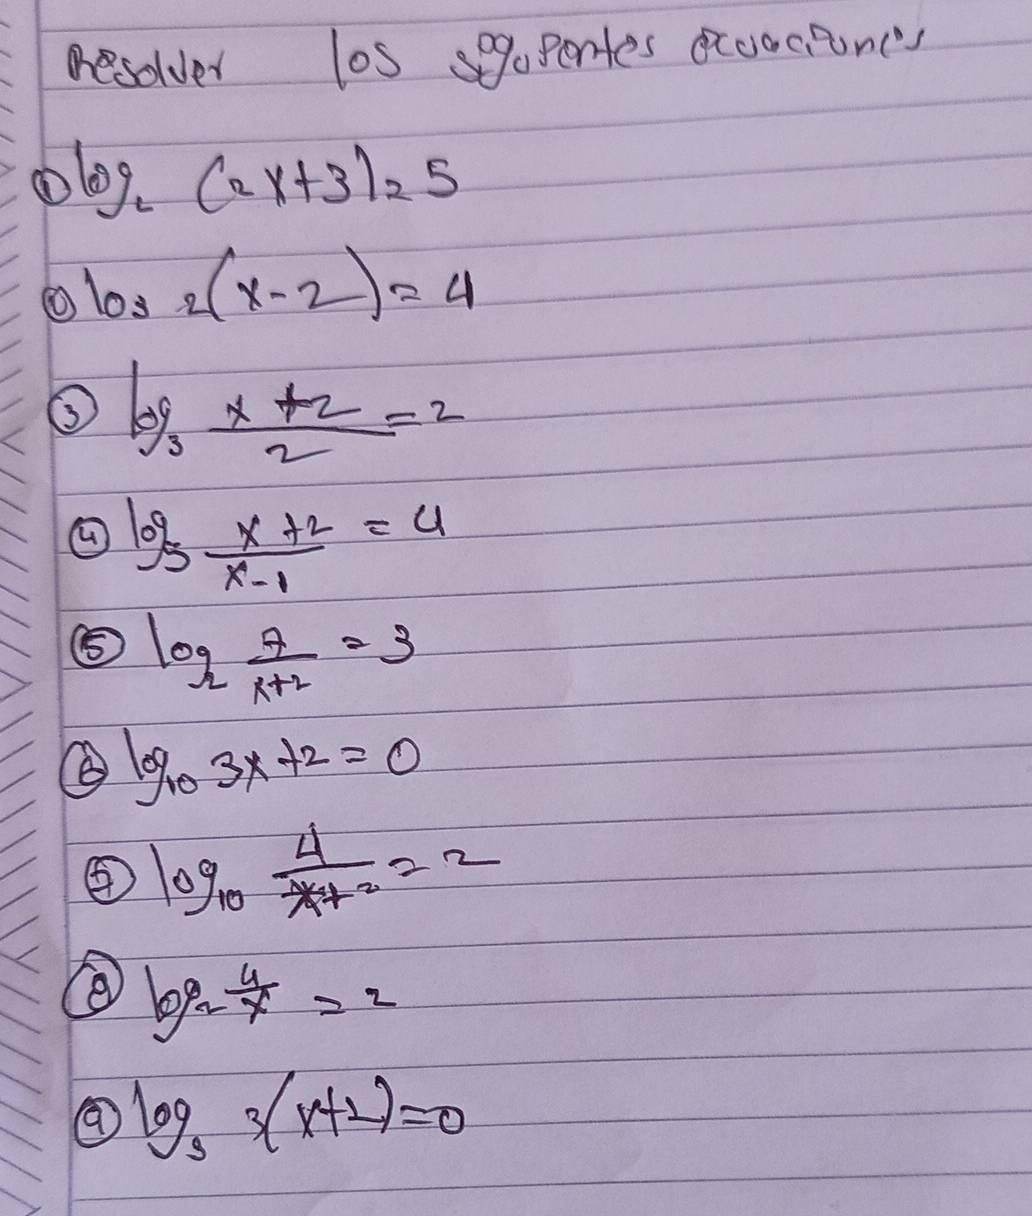 Resolver los siguientes ecuaciones
① log₂ (2x+3)=5
② log 2(x-2)=4
③ log₃ x+2/2 =2
④ log₅ x+2/x-1 =4
⑤ log₂ 7/x+2 =3
⑥ log₁₀ 3x+2=0
⑦ log₁₀ 4/x+2 =2
⑧ log₂ 4/x =2
⑨ log₃ 3(x+2)=0